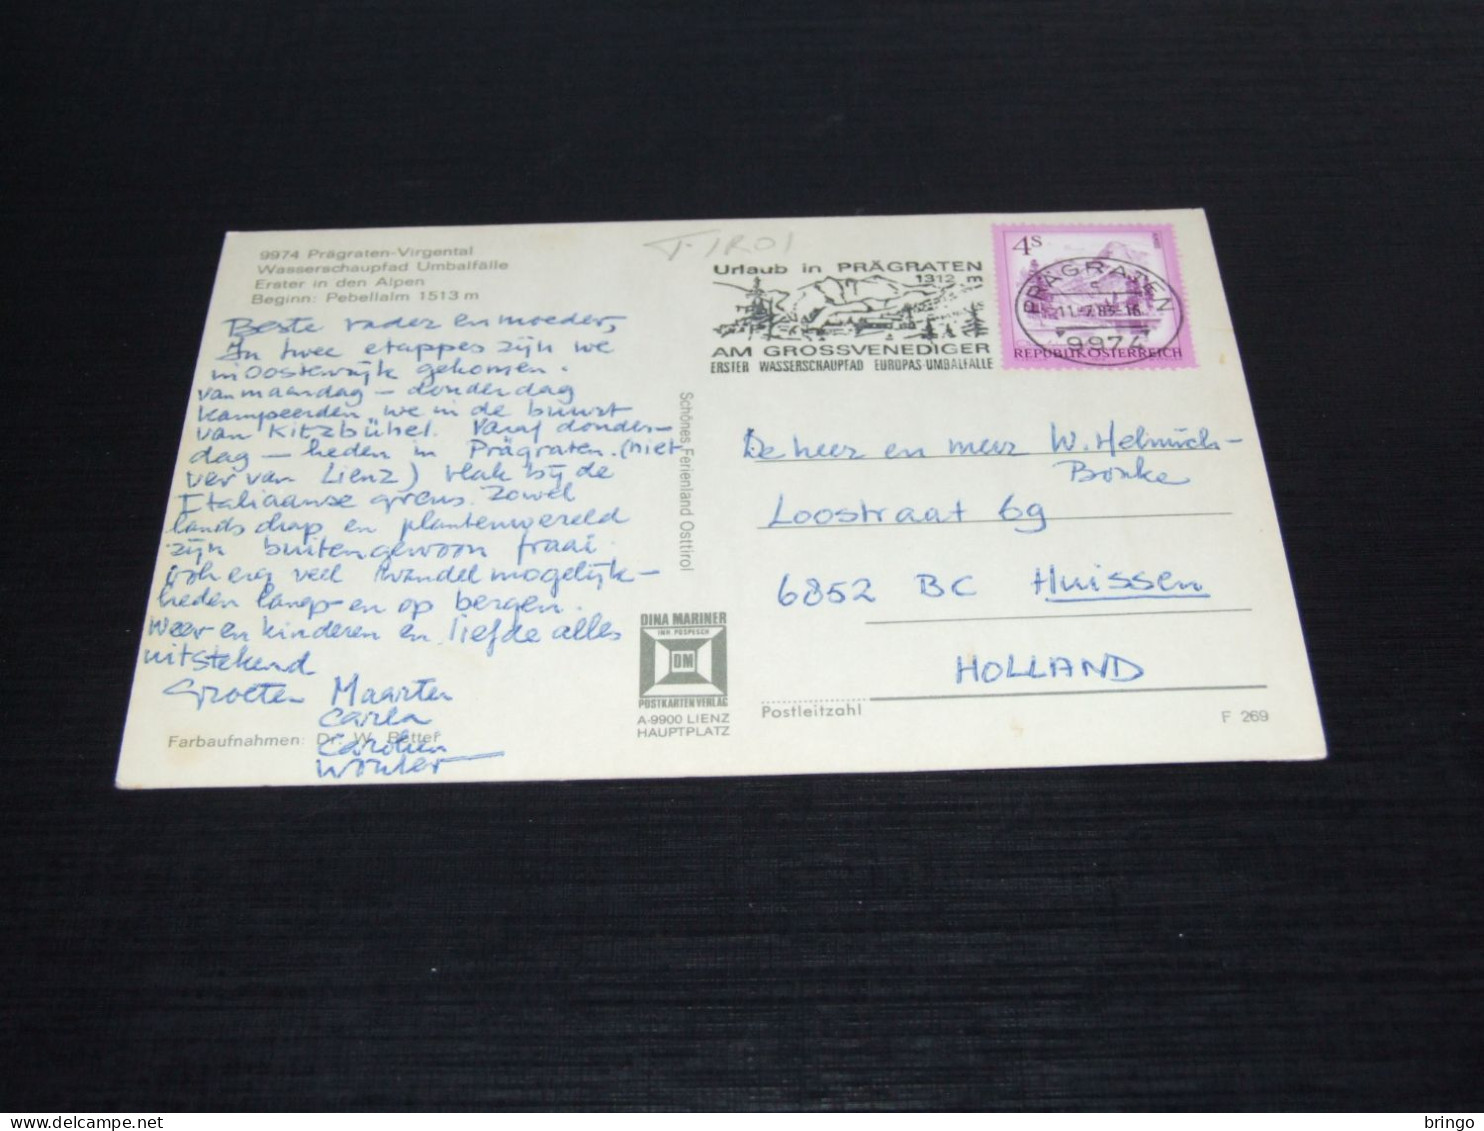 9974 Prägraten-Virgental
Wasserschaupfad Umbalfälle
Erster in den Alpen
Beginn: Pebellalm 1513 m
TIROL
Beste vader en moeder,
In twee etappes zijn we
in Oostenrijk gekomen.
van maandag - donderdag
kampeerden we in de buurt
van Kitzbühel. Vanaf donder-
dag - heden in Prägraten. (niet
ver van Lienz) vlak bij de
Italiaanse grens. Zowel
landschap en plantenwereld
zijn buitengewoon fraai
ook erg veel wandelmogelijk-
heden langs en op bergen.
Weer en kinderen en liefde alles
uitstekend
Groeten Maarten
Carla
Carolien
Wouter
Farbaufnahmen: Dr. W. Retter
Schönes Ferienland Osttirol
DINA MARINER
INH. POSPESCH
DM
POSTKARTENVERLAG
A-9900 LIENZ
HAUPTPLATZ
Urlaub in PRÄGRATEN
1312
AM GROSSVENEDIGER
ERSTER WASSERSCHAUPFAD EUROPAS-UMBALFÄLLE
4S
PRÄGRATEN
11.-7.83-16
9974
REPUBLIK ÖSTERREICH
De heer en mevr W. Helmich-
Bonke
Loostraat 69
6852 BC Huissen
HOLLAND
Postleitzahl
F 269
bringo